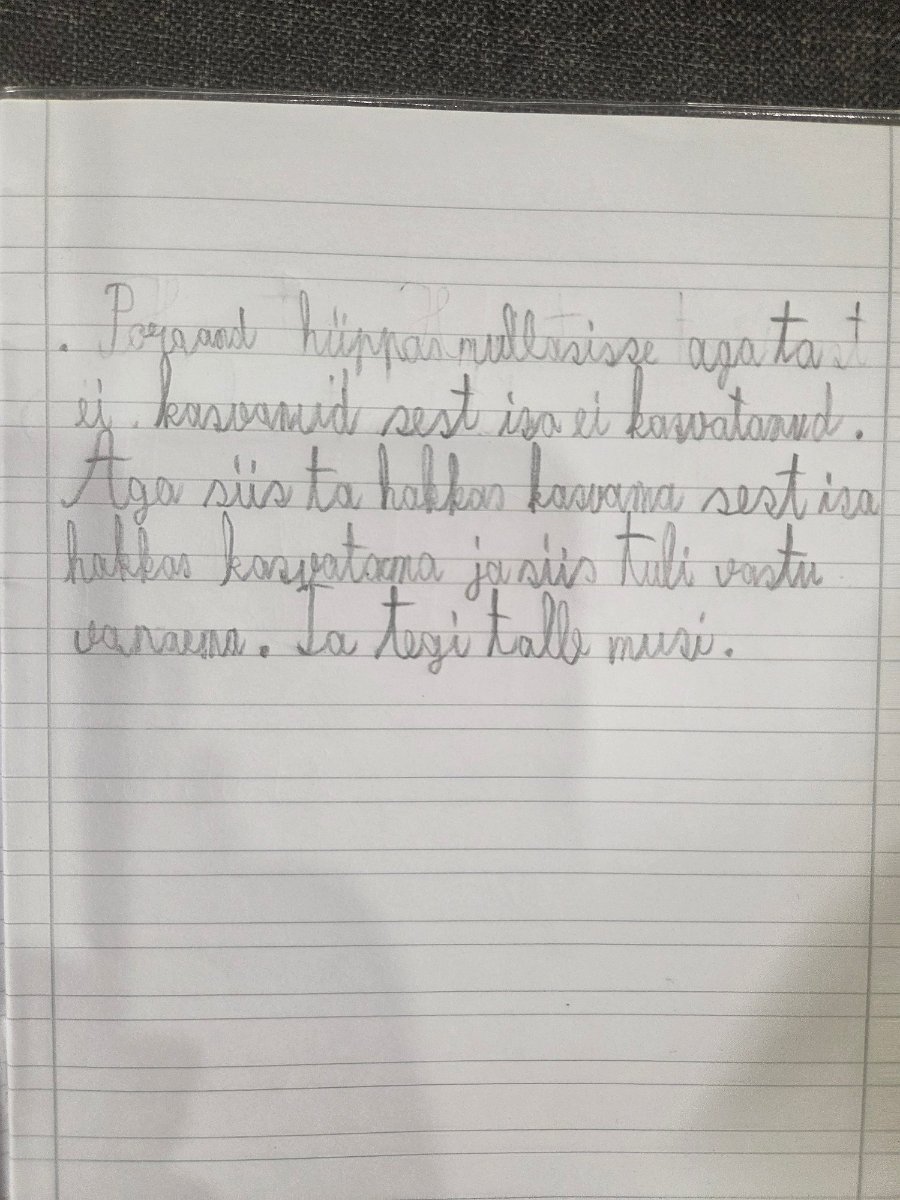 . Porgand hüppas mullasisse aga ta st
ei kasvanud sest isa ei kasvatanud.
Aga siis ta hakkas kasvama sest isa
hakkas kasvatama ja siis tuli vastu
vanaema. Ta tegi talle musi.